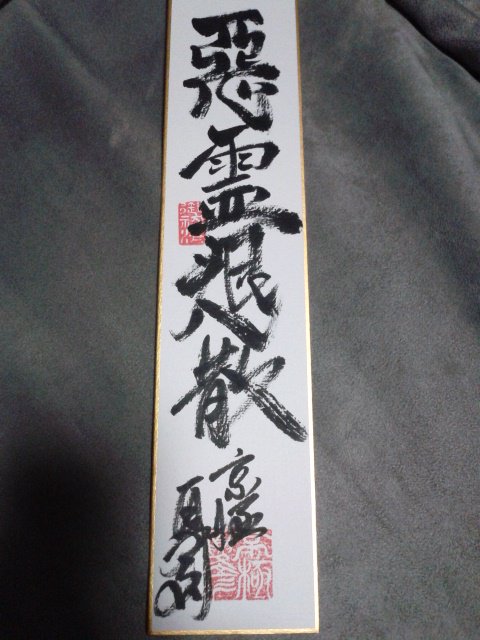 惡霊退散
京極
夏彦